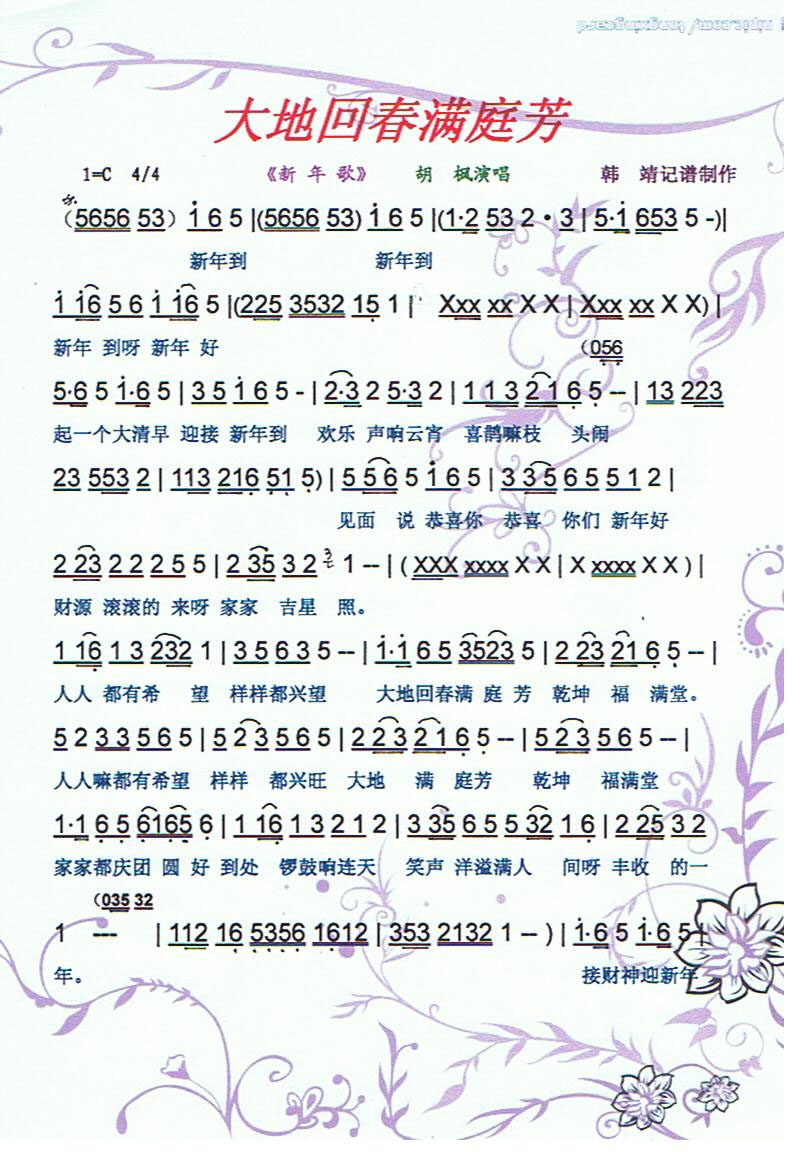 大地回春满庭芳
1=C 4/4 《新 年 歌》 胡 枫演唱 韩 靖记谱制作
(5656 53) i 6 5 |(5656 53) i 6 5 |(1·2 53 2 · 3 | 5·i 653 5 -)|
新年到 新年到
i i6 5 6 i i6 5 |(225 3532 15 1 | Xxx xx X X | Xxx xx X X) |
新年 到呀 新年 好 (056
5·6 5 i·6 5 | 3 5 i 6 5 - | 2·3 2 5·3 2 | 1 1 3 2 1 6 5 -- | 13 223
起一个大清早 迎接 新年到 欢乐 声响云宵 喜鹊嘛枝 头闹
23 553 2 | 113 216 51 5) | 5 5 6 5 i 6 5 | 3 3 5 6 5 5 1 2 |
见面 说 恭喜你 恭喜 你们 新年好
2 23 2 2 2 5 5 | 2 35 3 2 1 -- | ( XXX xxxx X X | X xxxx X X ) |
财源 滚滚的 来呀 家家 吉星 照。
1 16 1 3 232 1 | 3 5 6 3 5 -- | i·i 6 5 3523 5 | 2 23 21 6 5 -- |
人人 都有希 望 样样都兴望 大地回春满 庭 芳 乾坤 福 满堂。
5 2 3 3 5 6 5 | 5 2 3 5 6 5 | 2 2 3 2 1 6 5 -- | 5 2 3 5 6 5 -- |
人人嘛都有希望 样样 都兴旺 大地 满 庭芳 乾坤 福满堂
1·1 6 5 6165 6 | 1 16 1 3 2 1 2 | 3 35 6 5 5 32 1 6 | 2 25 3 2
家家都庆团 圆 好 到处 锣鼓响连天 笑声 洋溢满人 间呀 丰收 的一
(035 32
1 --- | 112 16 5356 1612 | 353 2132 1 -- ) | i·6 5 i·6 5 |
年。 接财神迎新年